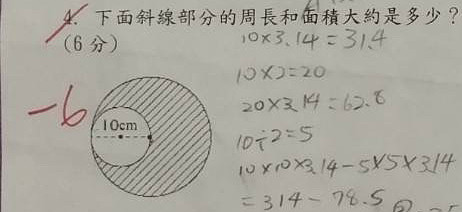 4. 下面斜線部分的周長和面積大約是多少？
(6分)
10×3.14=31.4
10×2=20
20×3.14=62.8
10÷2=5
10×10×3.14-5×5×3.14
=314-78.5
-6
10cm